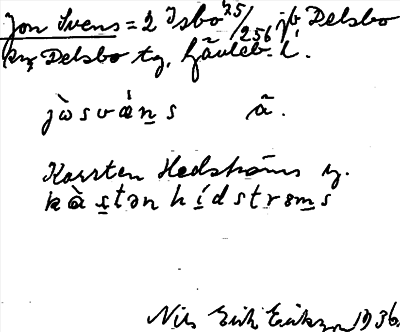 Jon Svens = 2 Isbo 25/256 jb Delsbo
kn, Delsbo tg, Gävleb. l.
jὼsvάn̲s ã.
Karsten Hedströms g.
kὰs̲tən hi̲dstrøm̲s
Nils Erik Erikson 1936